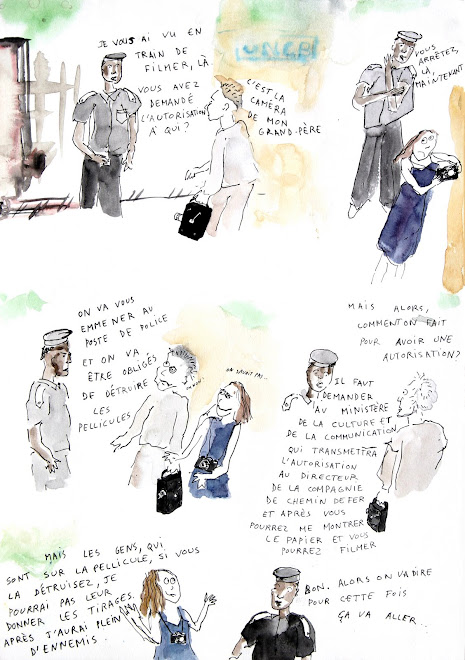 JE VOUS AI VU EN
TRAIN DE
FILMER, LÀ.
VOUS AVEZ
DEMANDÉ
L'AUTORISATION
À QUI?
C'EST LA
CAMÉRA
DE MON
GRAND-PÈRE
VOUS
ARRÊTEZ,
LÀ,
MAINTENANT
ON VA VOUS
EMMENER AU
POSTE DE POLICE
ET ON VA
ÊTRE OBLIGÉS
DE DÉTRUIRE
LES
PELLICULES
ON SAVAIT PAS...
MAIS ALORS,
COMMENT ON FAIT
POUR AVOIR UNE
AUTORISATION?
IL FAUT
DEMANDER
AU MINISTÈRE
DE LA CULTURE ET
DE LA COMMUNICATION
QUI TRANSMETTRA
L'AUTORISATION
AU DIRECTEUR
DE LA COMPAGNIE
DE CHEMIN DE FER
ET APRÈS VOUS
POURREZ ME MONTRER
LE PAPIER ET VOUS
POURREZ FILMER
MAIS LES GENS, QUI
SONT SUR LA PELLICULE, SI VOUS
LA DÉTRUISEZ, JE
POURRAI PAS LEUR
DONNER LES TIRAGES.
APRÈS J'AURAI PLEIN
D'ENNEMIS.
BON. ALORS ON VA DIRE
POUR CETTE FOIS
ÇA VA ALLER...